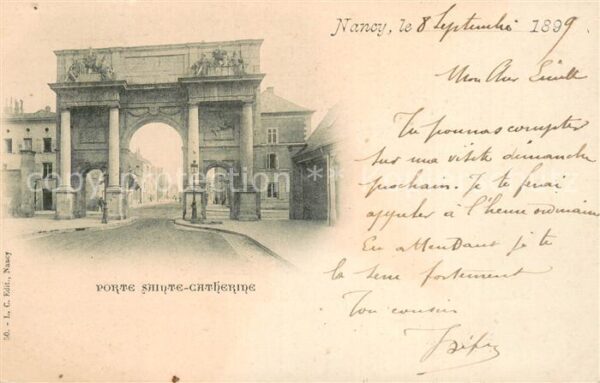 Nancy, le 8 Septembre 1899
Mon Cher
Tu pourras compter
sur ma visite dimanche
prochain. Je te ferai
appeler à l'heure ordinaire
En attendant je te
la serre fortement
Ton cousin
PORTE SAINTE-CATHERINE
50. - L. C. Edit., Nancy